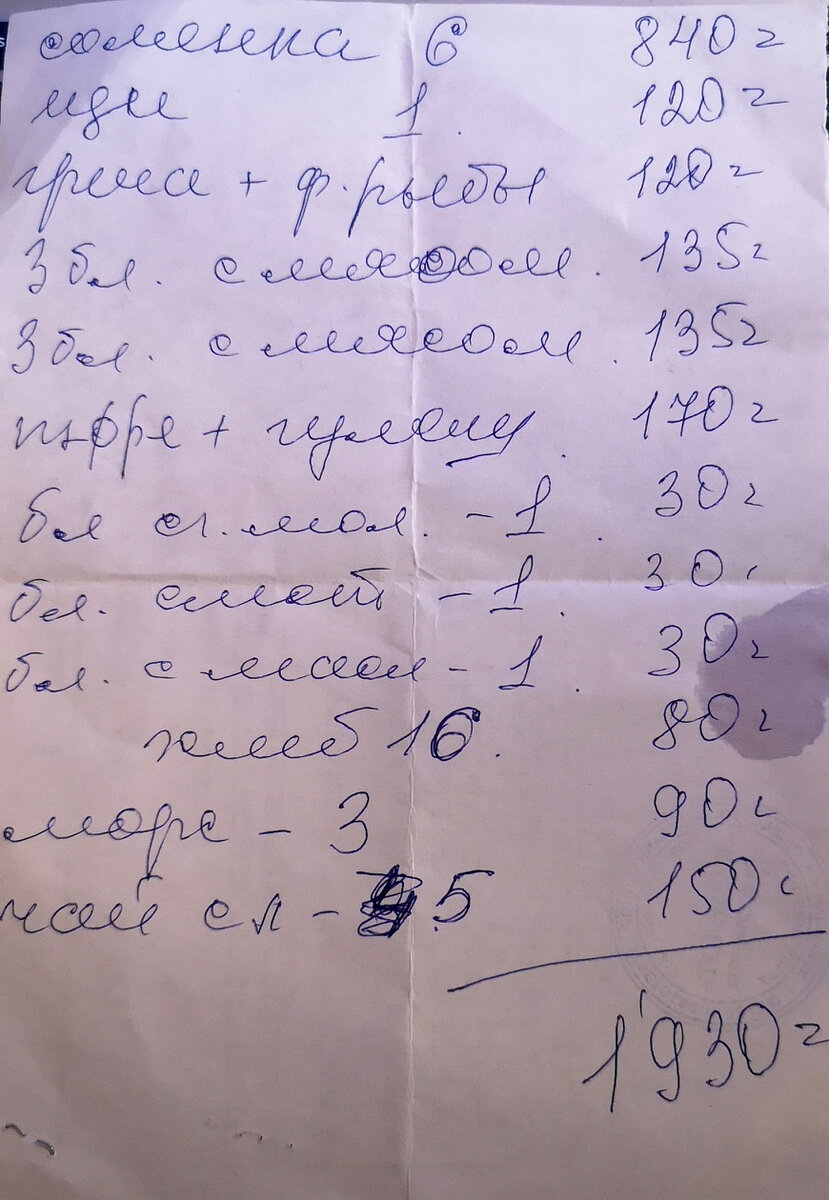 солянка 6 840 г
щи 1. 120 г
греча + ф. рыбы 120 г
3 бл. с мясом. 135 г
3 бл. с мясом. 135 г
пюре + гуляш. 170 г
бл сг. мол. - 1. 30 г
бл. смет - 1. 30 г
бл. с масл - 1. 30 г
хлеб 16. 80 г
морс - 3 90 г
чай сл - 5 150 г
1930 г